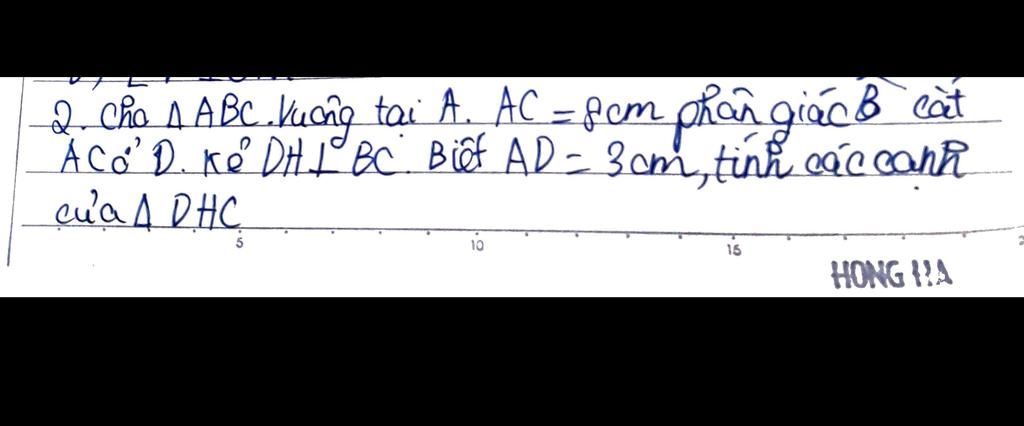 2. Cho Δ ABC. Vuông tại A. AC = 8cm phân giác B̂ cắt
AC ở D. Kẻ DH ⊥ BC. Biết AD = 3cm, tính các cạnh
của Δ DHC
5 10 15
HONG HA